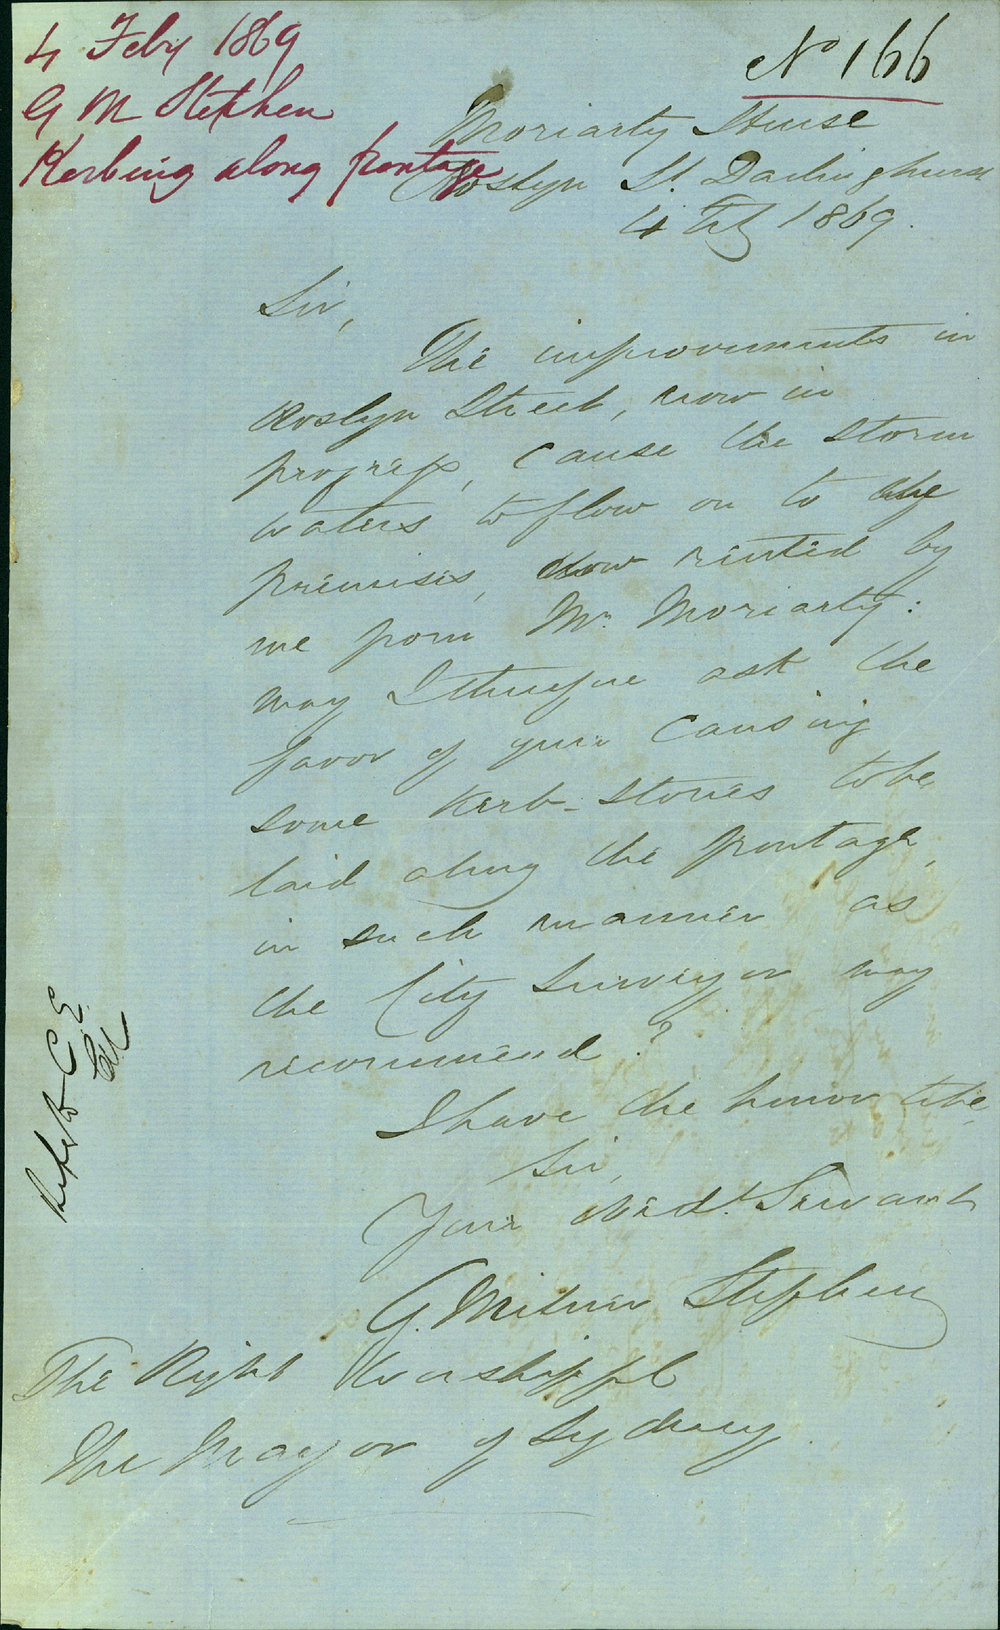 4 Feby 1869
G M Stephen
Kerbing along frontage
No 166
Moriarty House
Roslyn St. Darlinghurst
4 Feby 1869.
Sir,
The improvements in
Roslyn Street, now in
progress, cause the storm
waters to flow on to the
premises, now rented by
me from Mr. Moriarty:
may I therefore ask the
favor of your causing
some Kerb-stones to be
laid along the frontage,
in such manner as
the City Surveyor may
recommend?
I have the honor to be,
Sir,
Your Obedt. Servant
G. Milner Stephen
The Right Worshipful
The Mayor of Sydney
Refer to C E.